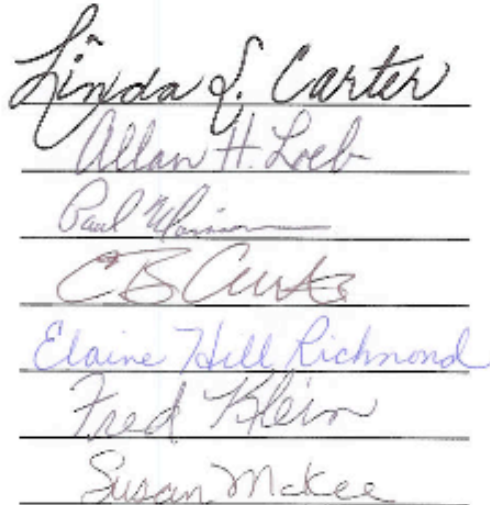 Linda L. Carter
Allan H. Loeb
Paul
CB Curtis
Elaine Hill Richmond
Fred Klein
Susan McKee